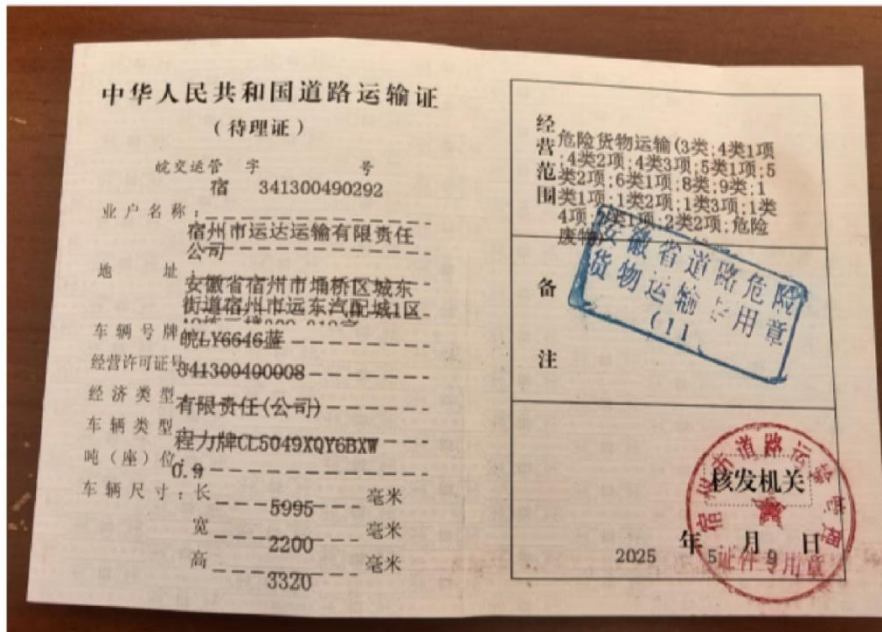 中华人民共和国道路运输证
（待理证）
皖交运管 字 号
宿 341300490292
业户名称：
宿州市运达运输有限责任
公司
地 址：
安徽省宿州市埇桥区城东
街道宿州市远东汽配城1区
车辆号牌
皖LY6646蓝
经营许可证号
341300400008
经济类型
有限责任(公司)
车辆类型
程力牌CL5049XQY6BXW
吨（座）位
0.9
车辆尺寸：长 5995 毫米
宽 2200 毫米
高 3320 毫米
经营范围
危险货物运输(3类;4类1项
;4类2项;4类3项;5类1项;5
类2项;6类1项;8类;9类;1
类1项;1类2项;1类3项;1类
4项;2类1项;2类2项;危险
废物)
备注
安徽省道路危险
货物运输专用章
(11
宿州市道路运输管理
核发机关
2025 年 5 月 9 日
证件专用章